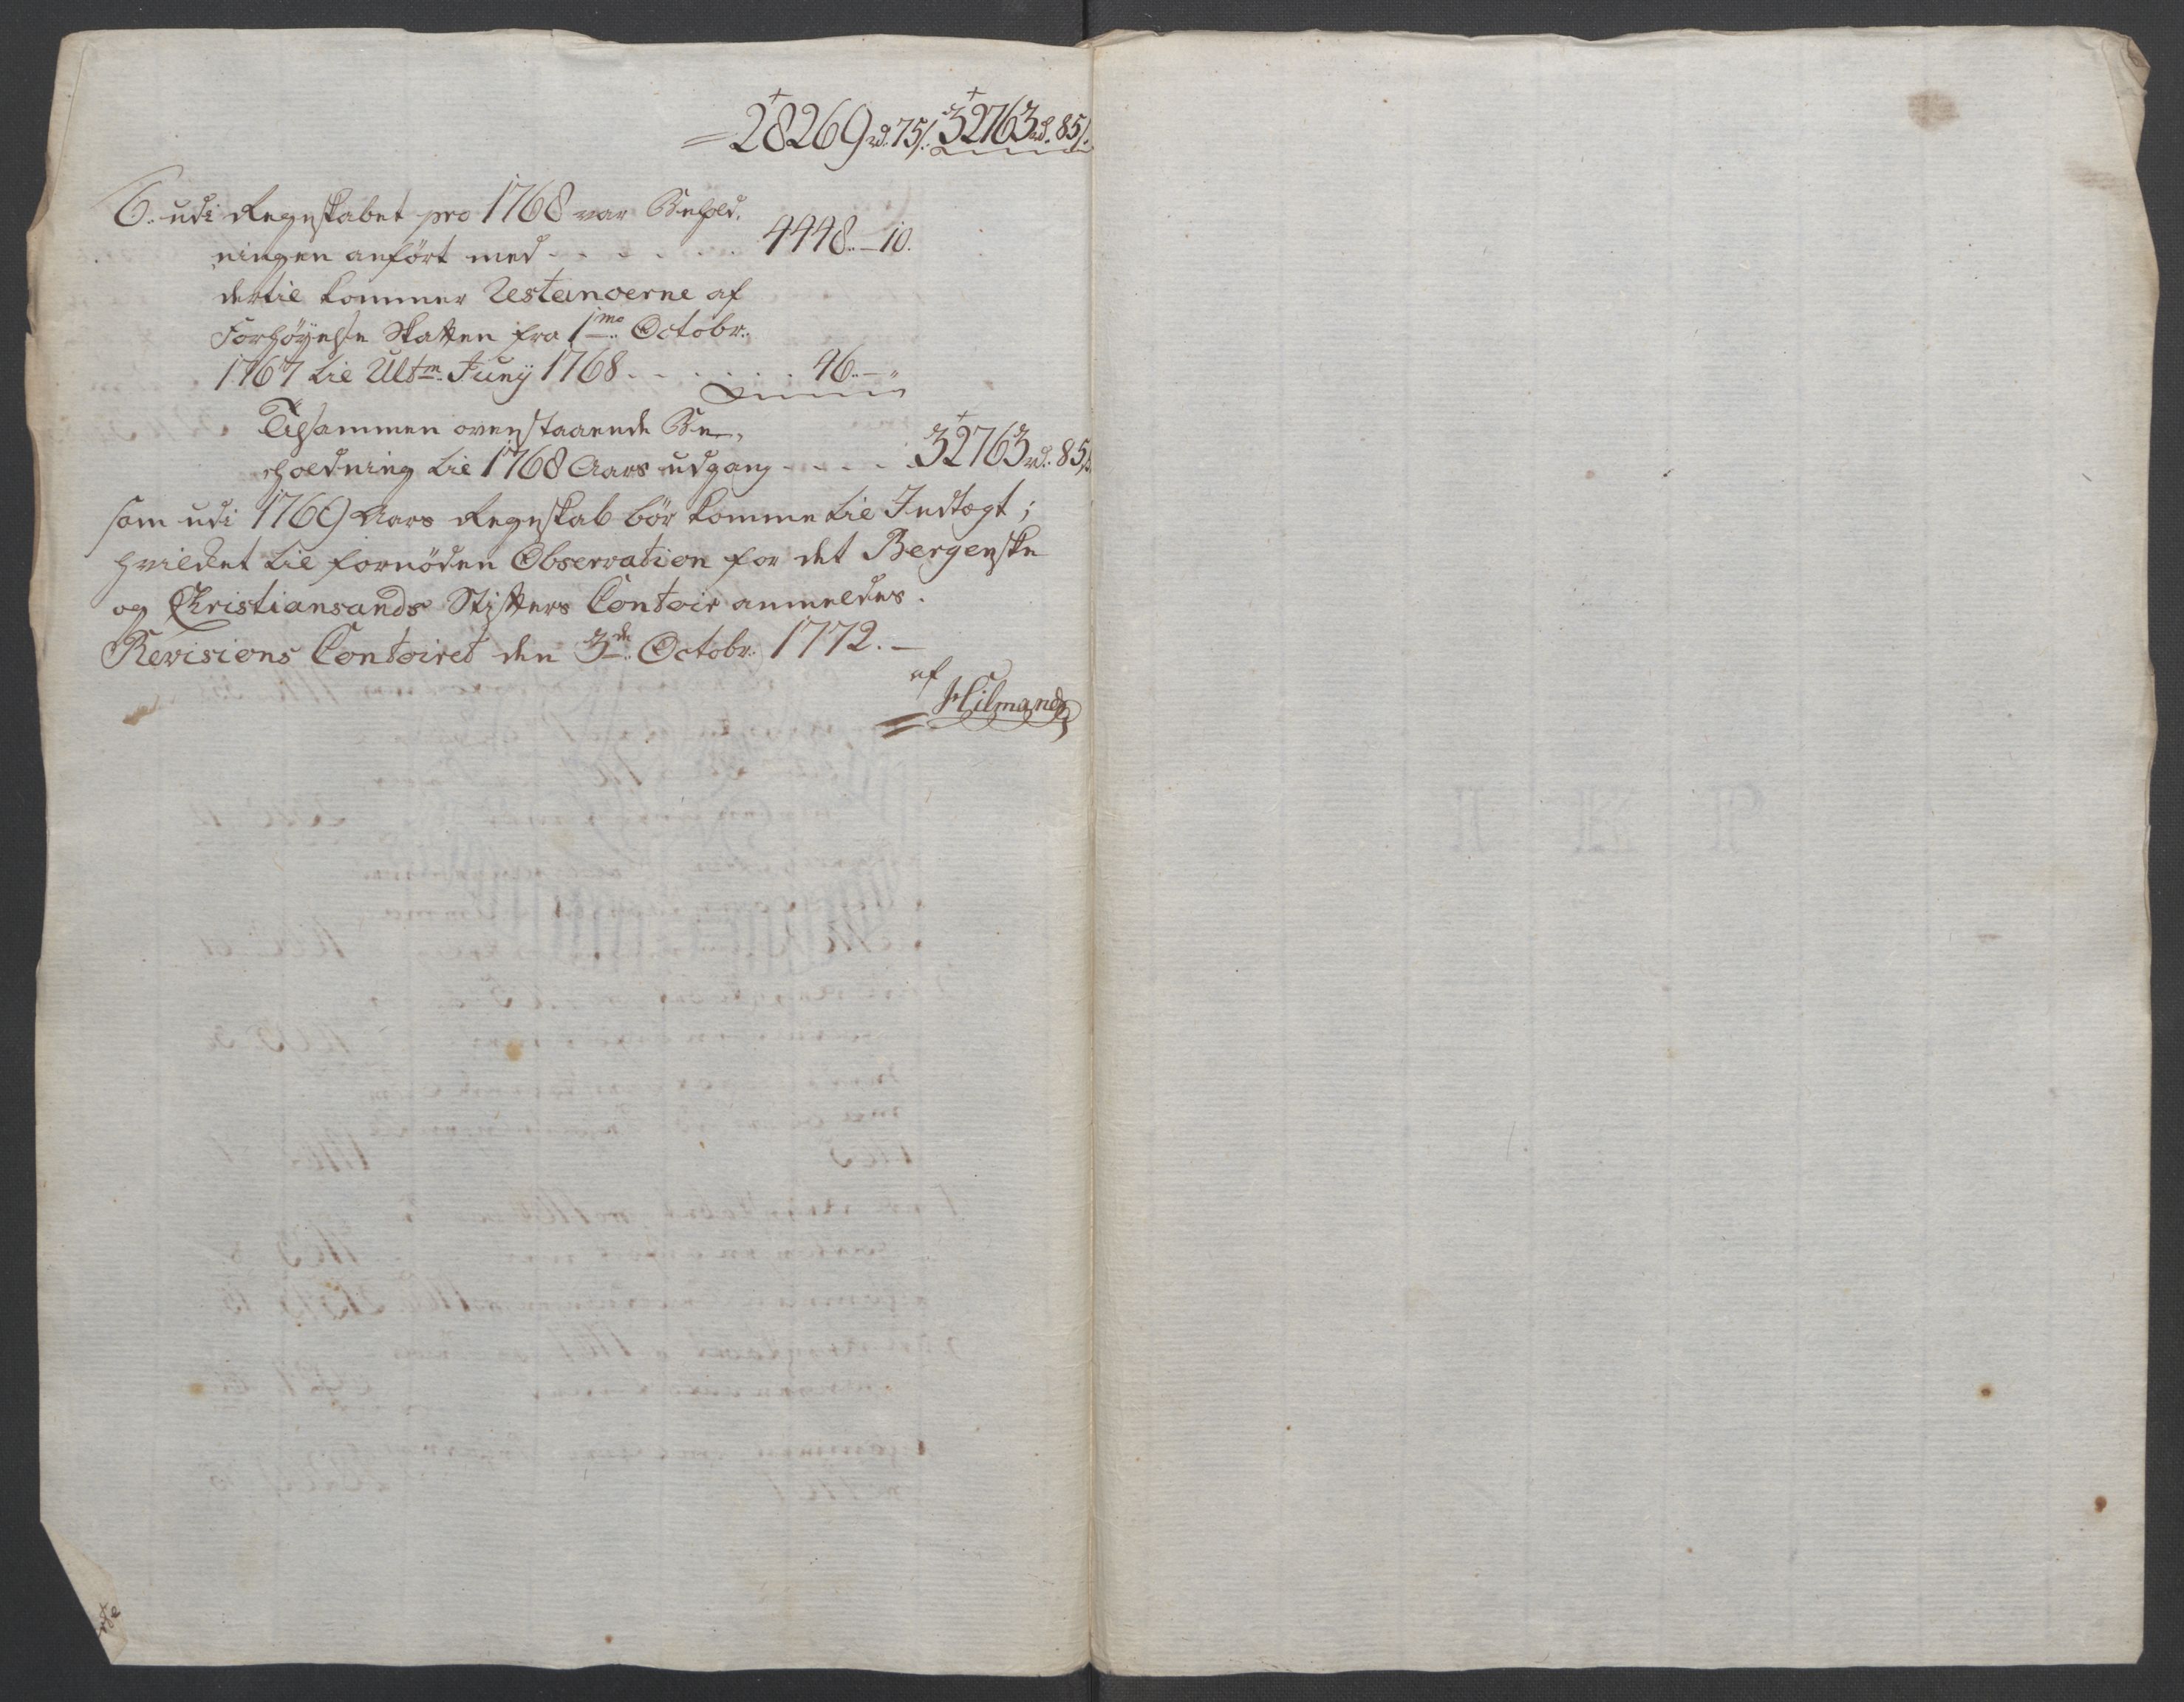 = 28269 rd. 75 s. 32763 rd. 85 s.
6.. udi Regnskabet pro 1768 var Behold,
ningen anført med - - - - - - 4448.. — 10.
dertil kommer Restancerne af
Forhøyelse Skatten fra 1mo. Octobr.
1767 til Ultm. Juny 1768. - - - - - 46.. — "
Tilsammen ovenstaaende Be,
holdning til 1768 Aars udgang - - - - 32763 rd. 85 s.
som udi 1769 Aars Regnskab bør komme til Indtægt;
hvilket til fornøden Observation for det Bergenske
og Christiansands Stifters Contoir anmeldes.
Revisions Contoiret den 3de. Octobr. 1772. —
af
Hilmand